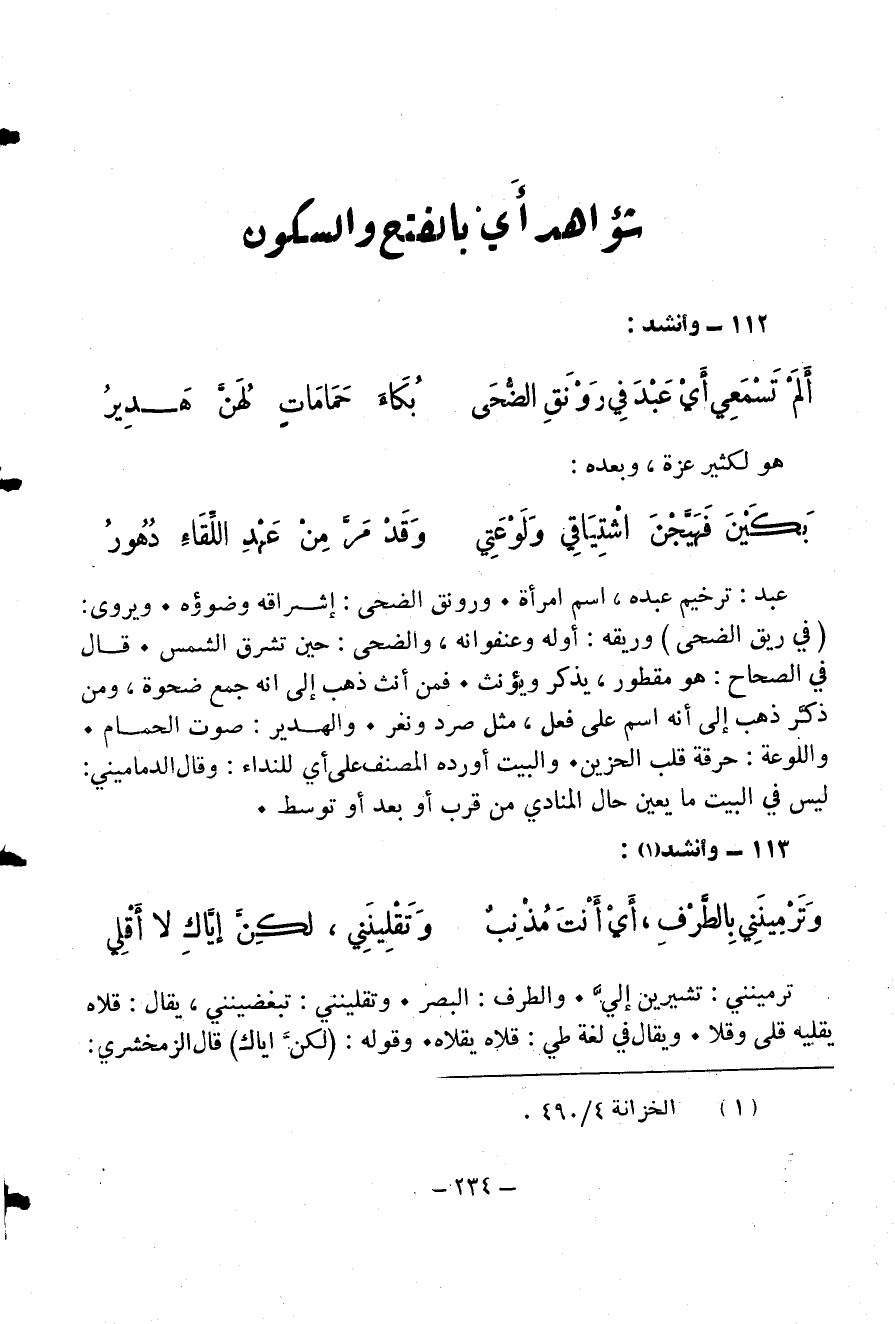 شواهد أَيْ بالفتح والسكون
١١٢ ـ وأنشد :
أَلَمْ تَسْمَعِي أَيْ عَبْدَ فِي رَوْنَقِ الضُّحَى بُكَاءَ حَمَامَاتٍ لَهُنَّ هَـــدِيرُ
هو لكثير عزة ، وبعده :
بَكَيْنَ فَهَيَّجْنَ اشْتِيَاقِي وَلَوْعَتِي وَقَدْ مَرَّ مِنْ عَهْدِ اللِّقَاءِ دُهُورُ
عبد : ترخيم عبده ، اسم امرأة ٠ ورونق الضحى : إشــراقه وضوؤه ٠ ويروى:
( في ريق الضحى ) وريقه : أوله وعنفوانه ، والضحى : حين تشرق الشمس ٠ قــال
في الصحاح : هو مقطور ، يذكر ويؤنث ٠ فمن أنث ذهب إلى انه جمع ضحوة ، ومن
ذكّر ذهب إلى أنه اسم على فعل ، مثل صرد ونغر ٠ والهــدير : صوت الحمــام ٠
واللوعة : حرقة قلب الحزين٠ والبيت أورده المصنف على أي للنداء : وقال الدماميني:
ليس في البيت ما يعين حال المنادي من قرب أو بعد أو توسط ٠
١١٣ ـ وأنشد(١) :
وَتَرْمِينَنِي بِالطَّرْفِ ، أَيْ أَنْتَ مُذْنِبٌ وَتَقْلِينَنِي ، لكِنَّ إيَّاكِ لا أَقْلِي
ترمينني : تشيرين إليّ ٠ والطرف : البصر ٠ وتقلينني : تبغضينني ، يقال : قلاه
يقليه قلى وقلا ٠ ويقال في لغة طي : قلاه يقلاه٠ وقوله : (لكنّ اياك) قال الزمخشري:
(١) الخزانة ٤/٤٩٠ .
ـ ٢٣٤ ـ